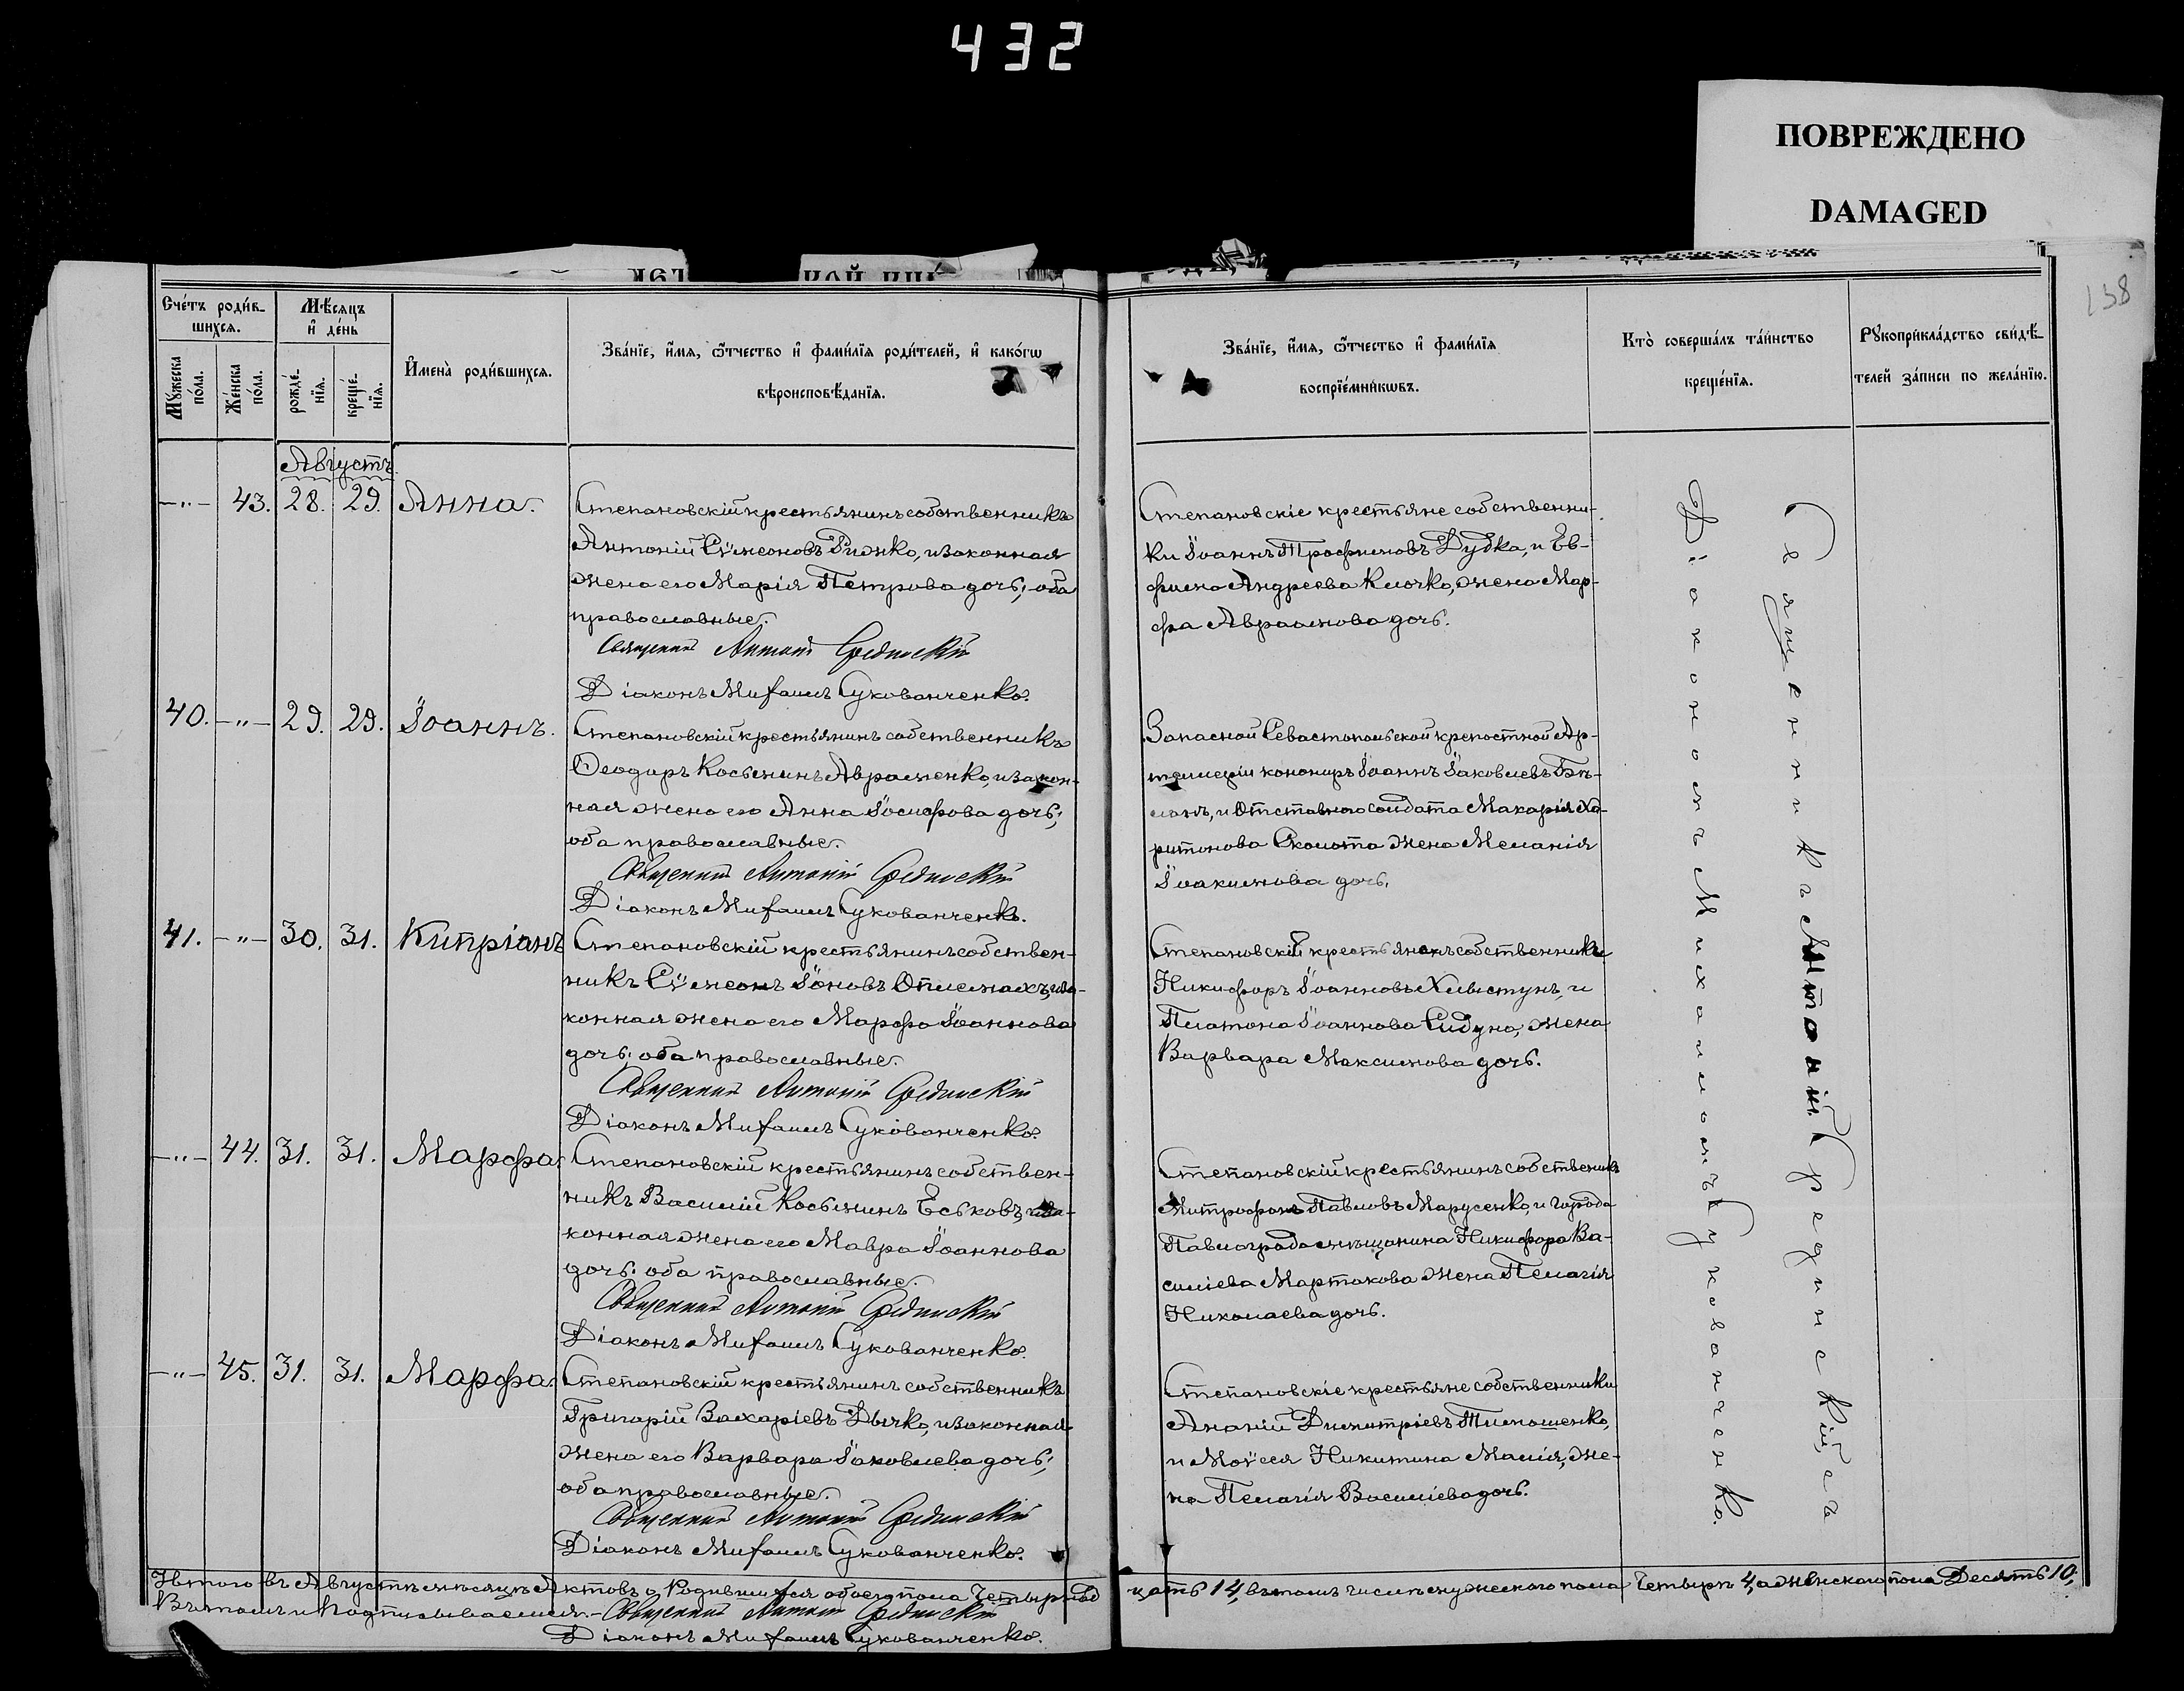 432
ПОВРЕЖДЕНО
DAMAGED
138
Сче́тъ роди́в-
шихся.
Мѣ́сяцъ
и҆ де́нь
Мꙋ́жеска
по́ла.
Же́нска
по́ла.
рожде́-
нїя.
креще́-
нїя.
И҆мена̀ роди́вшихся.
Зва́нїе, и҆́мя, ѻ҆́тчество и҆ фами́лїя роди́телей, и҆ како́гѡ
вѣроисповѣ́данїя.
Зва́нїе, и҆́мя, ѻ҆́тчество и҆ фами́лїя
воспрїе́мникѡвъ.
Кто̀ соверша́лъ та́инство
креще́нїя.
Рꙋкоприкла́дство свидѣ́-
телей за́писи по жела́нїю.
Августъ
-"- 43. 28. 29. Анна.
Степановскій крестьянинъ собственникъ
Антоній Сѵмеоновъ Рижко, и законная
жена его Марія Петрова дочь; оба
православные.
Священникъ Антоній Срединскій
Діаконъ Михаилъ Сукованченко.
Степановскіе крестьяне собственни-
ки Іоаннъ Трофимовъ Дудка, и Ев-
фима Андреева Клочко, жена Мар-
фа Авраамова дочь.
40. -"- 29. 29. Іоаннъ.
Степановскій крестьянинъ собственникъ
Ѳеодоръ Косьминъ Авраменко, и закон-
ная жена его Анна Іосифова дочь;
оба православные.
Священникъ Антоній Срединскій
Діаконъ Михаилъ Сукованченко.
Запасной Севастопольской крепостной Ар-
тиллеріи конониръ Іоаннъ Іаковлевъ Бѣ-
ланъ, и Отставного солдата Макарія Ха-
ритонова Сколота жена Меланія
Іоакимова дочь.
41. -"- 30. 31. Кипріанъ
Степановскій крестьянинъ собствен-
никъ Сѵмеонъ Іоновъ и за-
конная жена его Марфа Іоаннова
дочь; оба православные.
Священникъ Антоній Срединскій
Діаконъ Михаилъ Сукованченко.
Степановскій крестьянинъ собственникъ
Никифоръ Іоанновъ Хлыстунъ, и
Платона Іоаннова Сидуна, жена
Варвара Максимова дочь.
-"- 44. 31. 31. Марфа.
Степановскій крестьянинъ собствен-
никъ Василій Косьминъ Еськовъ, и за-
конная жена его Мавра Іоаннова
дочь; оба православные.
Священникъ Антоній Срединскій
Діаконъ Михаилъ Сукованченко.
Степановскій крестьянинъ собственикъ
Митрофанъ Павловъ Марусенко, и города
Павлограда мѣщанина Никифора Ва-
силіева Мартакова жена Пелагія
Николаева дочь.
-"- 45. 31. 31. Марфа.
Степановскій крестьянинъ собственникъ
Григорій Захаріевъ Дычко, и законная
жена его Варвара Іаковлева дочь;
оба православные.
Священникъ Антоній Срединскій
Діаконъ Михаилъ Сукованченко.
Степановскіе крестьяне собственники
Ананій Димитріевъ Тимошенко,
и Моѵсея Никитина Малія, же-
на Пелагія Василіева дочь.
Священникъ Антоній Срединскій съ
Діакономъ Михаиломъ Сукованченко.
Итого въ Августѣ мѣсяцѣ Актовъ о Родившихся обоего пола Четырнад цать 14, въ томъ числѣ мужеского пола Четыре 4, а женского пола Десять 10;
Въ томъ и Подписываемся. - Священникъ Антоній Срединскій
Діаконъ Михаилъ Сукованченко.